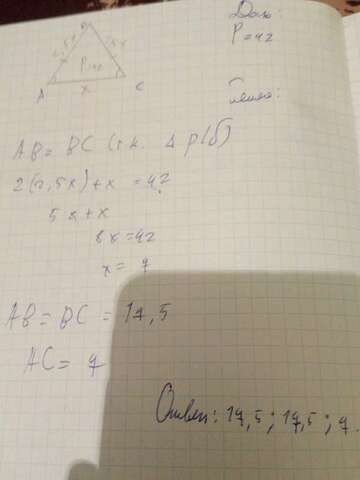 Дано:
P=42
B
2,5x
P=42
A x C
AB = BC (т.к. Δ р/б)
2(2,5x)+x = 42
5x+x
6x=42
x= 7
AB = BC = 17,5
AC = 7
Ответ: 17,5 ; 17,5 ; 7.